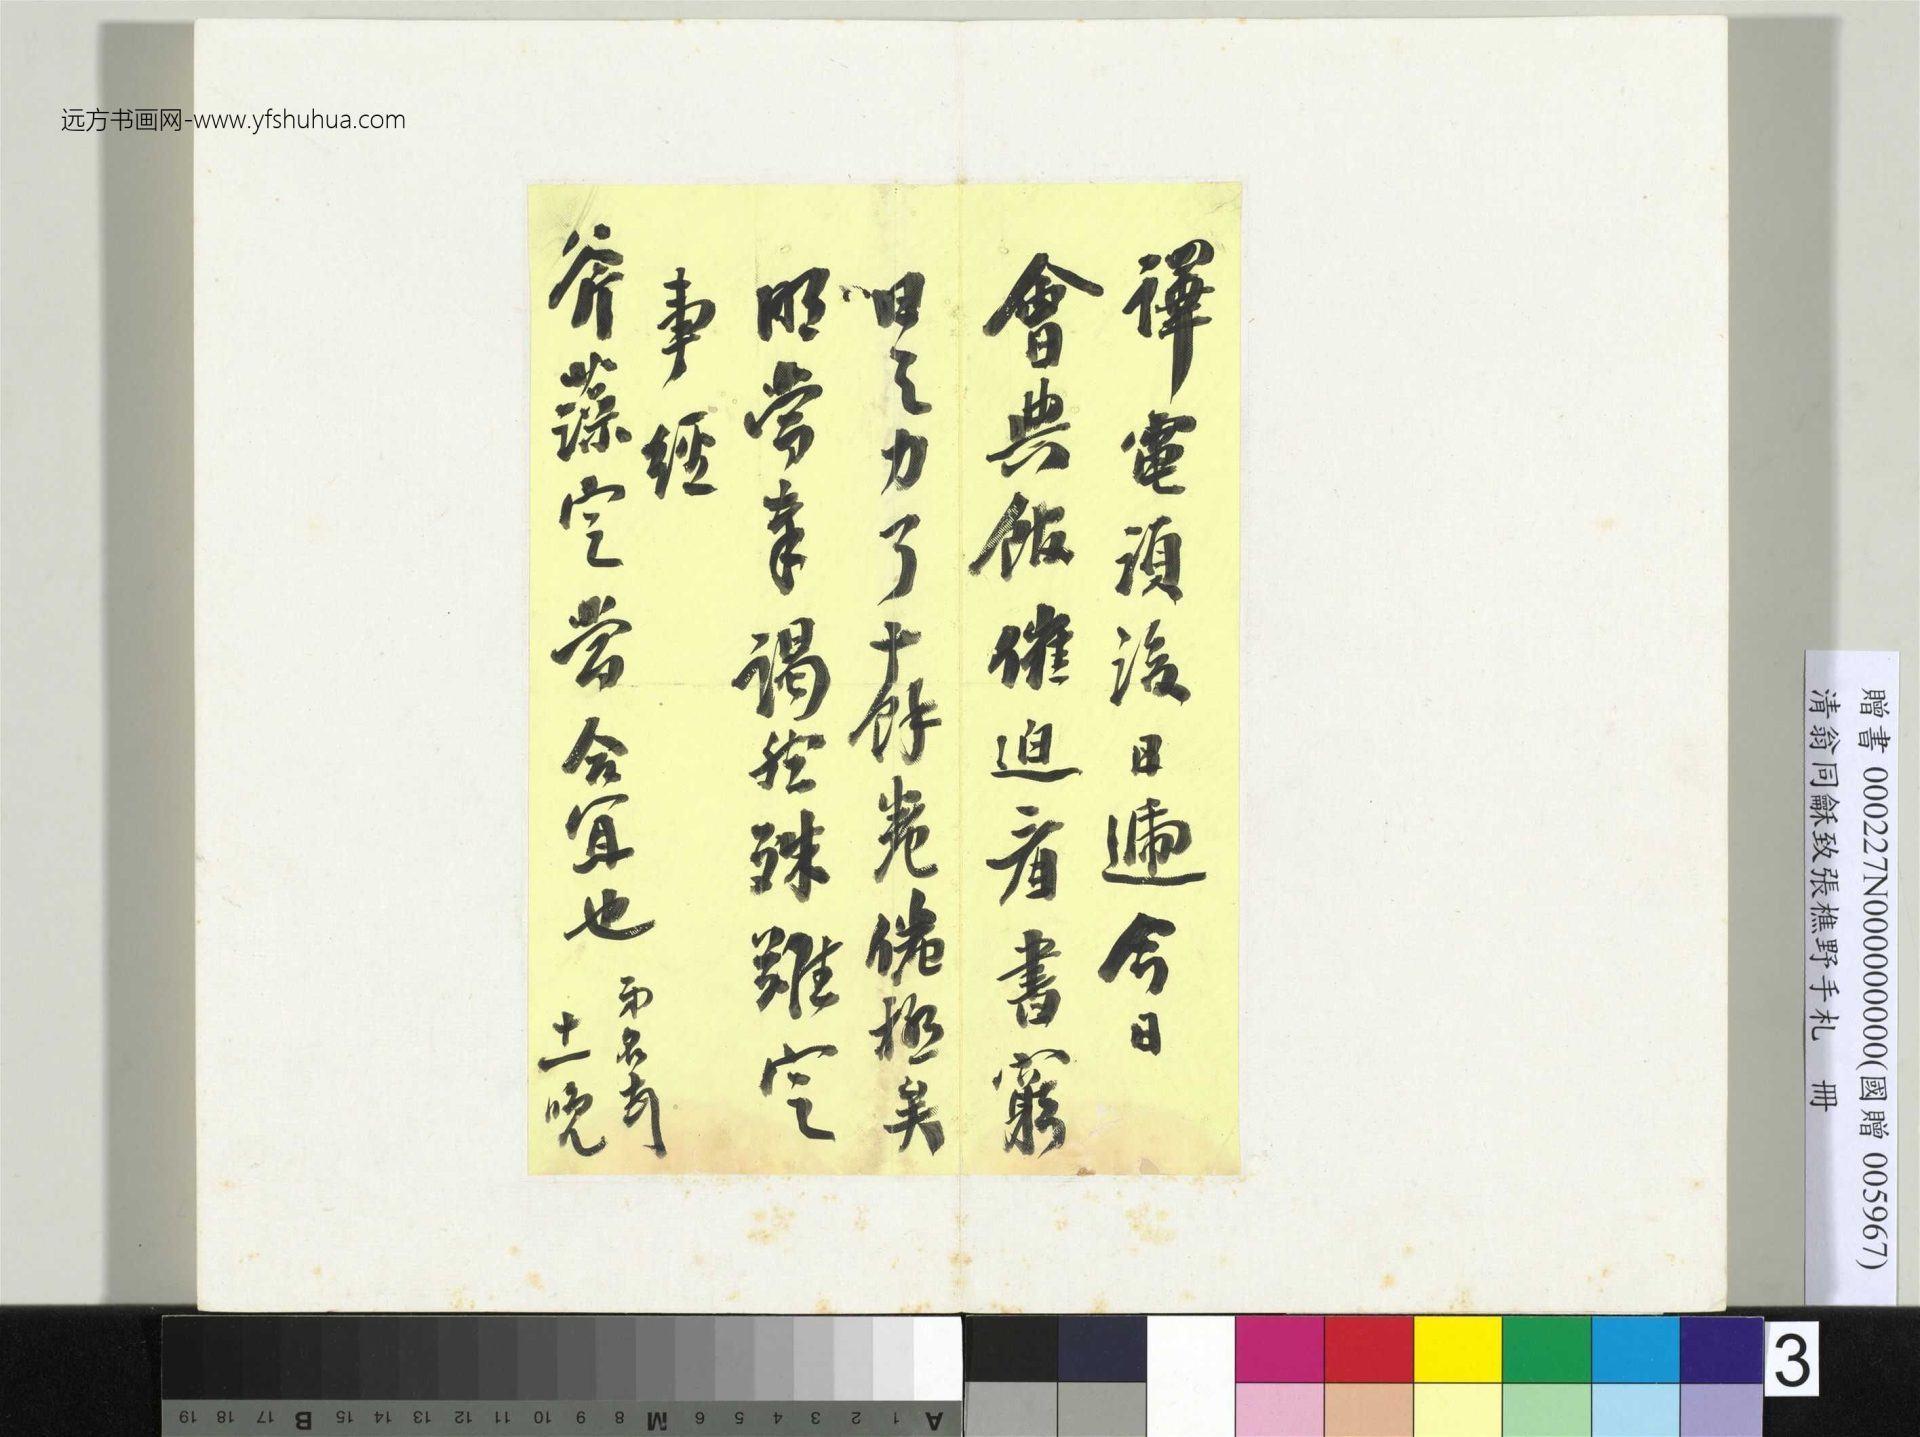 远方书画网-www.yfshuhua.com
譯電須後日遞今日
會典館催迫看書窮
日之力了十餘卷倦極矣
明當奉謁然殊難定
事經
斧藻定當合宜也
弟名頓
十一晚
贈書 000227N000000000(國贈 005967)
清翁同龢致張樵野手札 冊
3
A 1 2 3 4 5 6 M 8 9 10 11 12 13 14 15 B 17 18 19